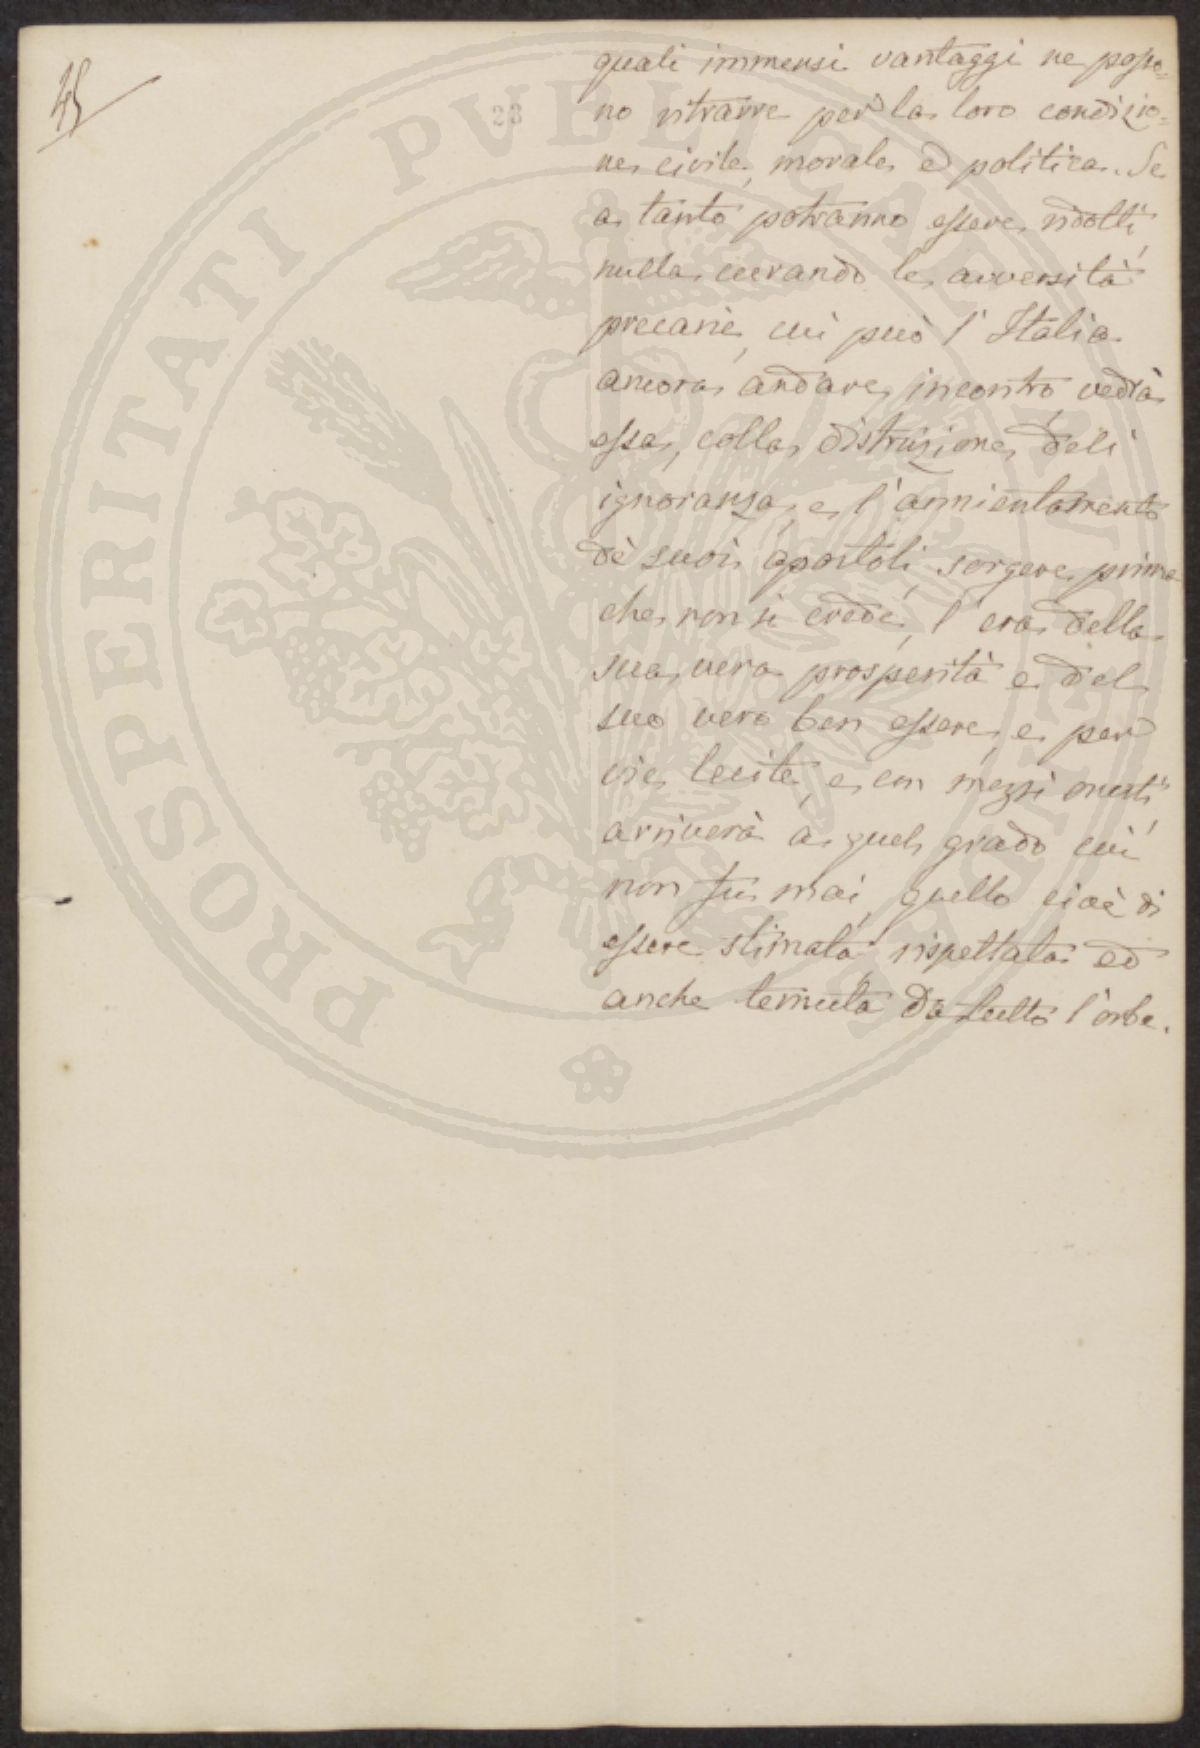 45
23
quali immensi vantaggi ne posso=
no ritrarre per la loro condizio=
ne civile, morale e politica. Se
a tanto potranno essere ridotti,
nulla curando le avversità
precarie, cui può l'Italia
ancora andare incontro, vedrà
essa, colla distruzione deli
ignoranza, e l'annientamento
dè suoi apostoli, sorgere prima
che non si crede, l'era della
sua vera prosperità e del
suo vero ben essere, e per
vie lecite, e con mezzi onesti,
arriverà a quel grado cui
non fu mai, quello cioè di
essere stimata rispettata ed
anche temuta da tutto l'orbe.
PROSPERITATI PVBLICAE